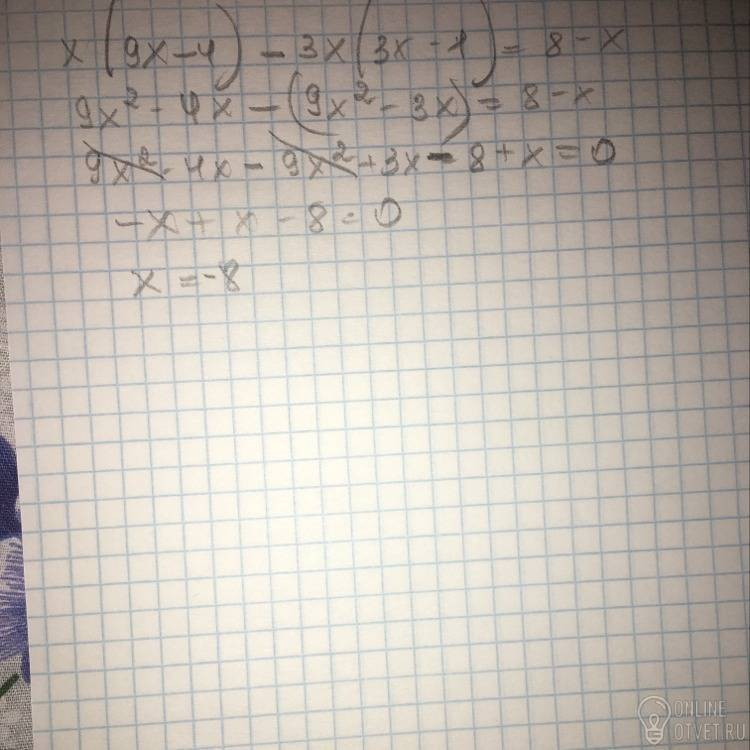 x(9x-4)-3x(3x-1)=8-x
9x²-4x-(9x²-3x)=8-x
9x²-4x-9x²+3x-8+x=0
-x+x-8=0
x=-8
ONLINE
OTVET.RU